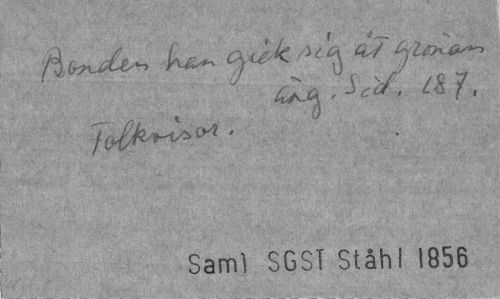 Bonden han gick sig åt grönan
äng. Sid. 187.
Folkvisor.
Saml SGST Ståhl 1856